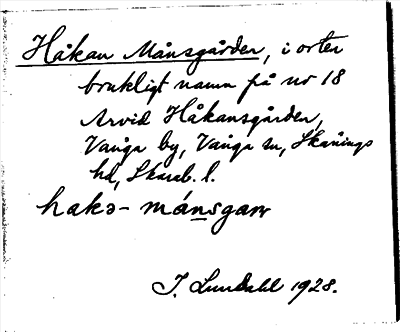 Håkan Månsgården, i orten
brukligt namn på nr 18
Arvid Håkansgården,
Vånga by, Vånga sn, Skånings
hd, Skarab. l.
hakə- mánsgaɳ
I. Lundahl 1928.